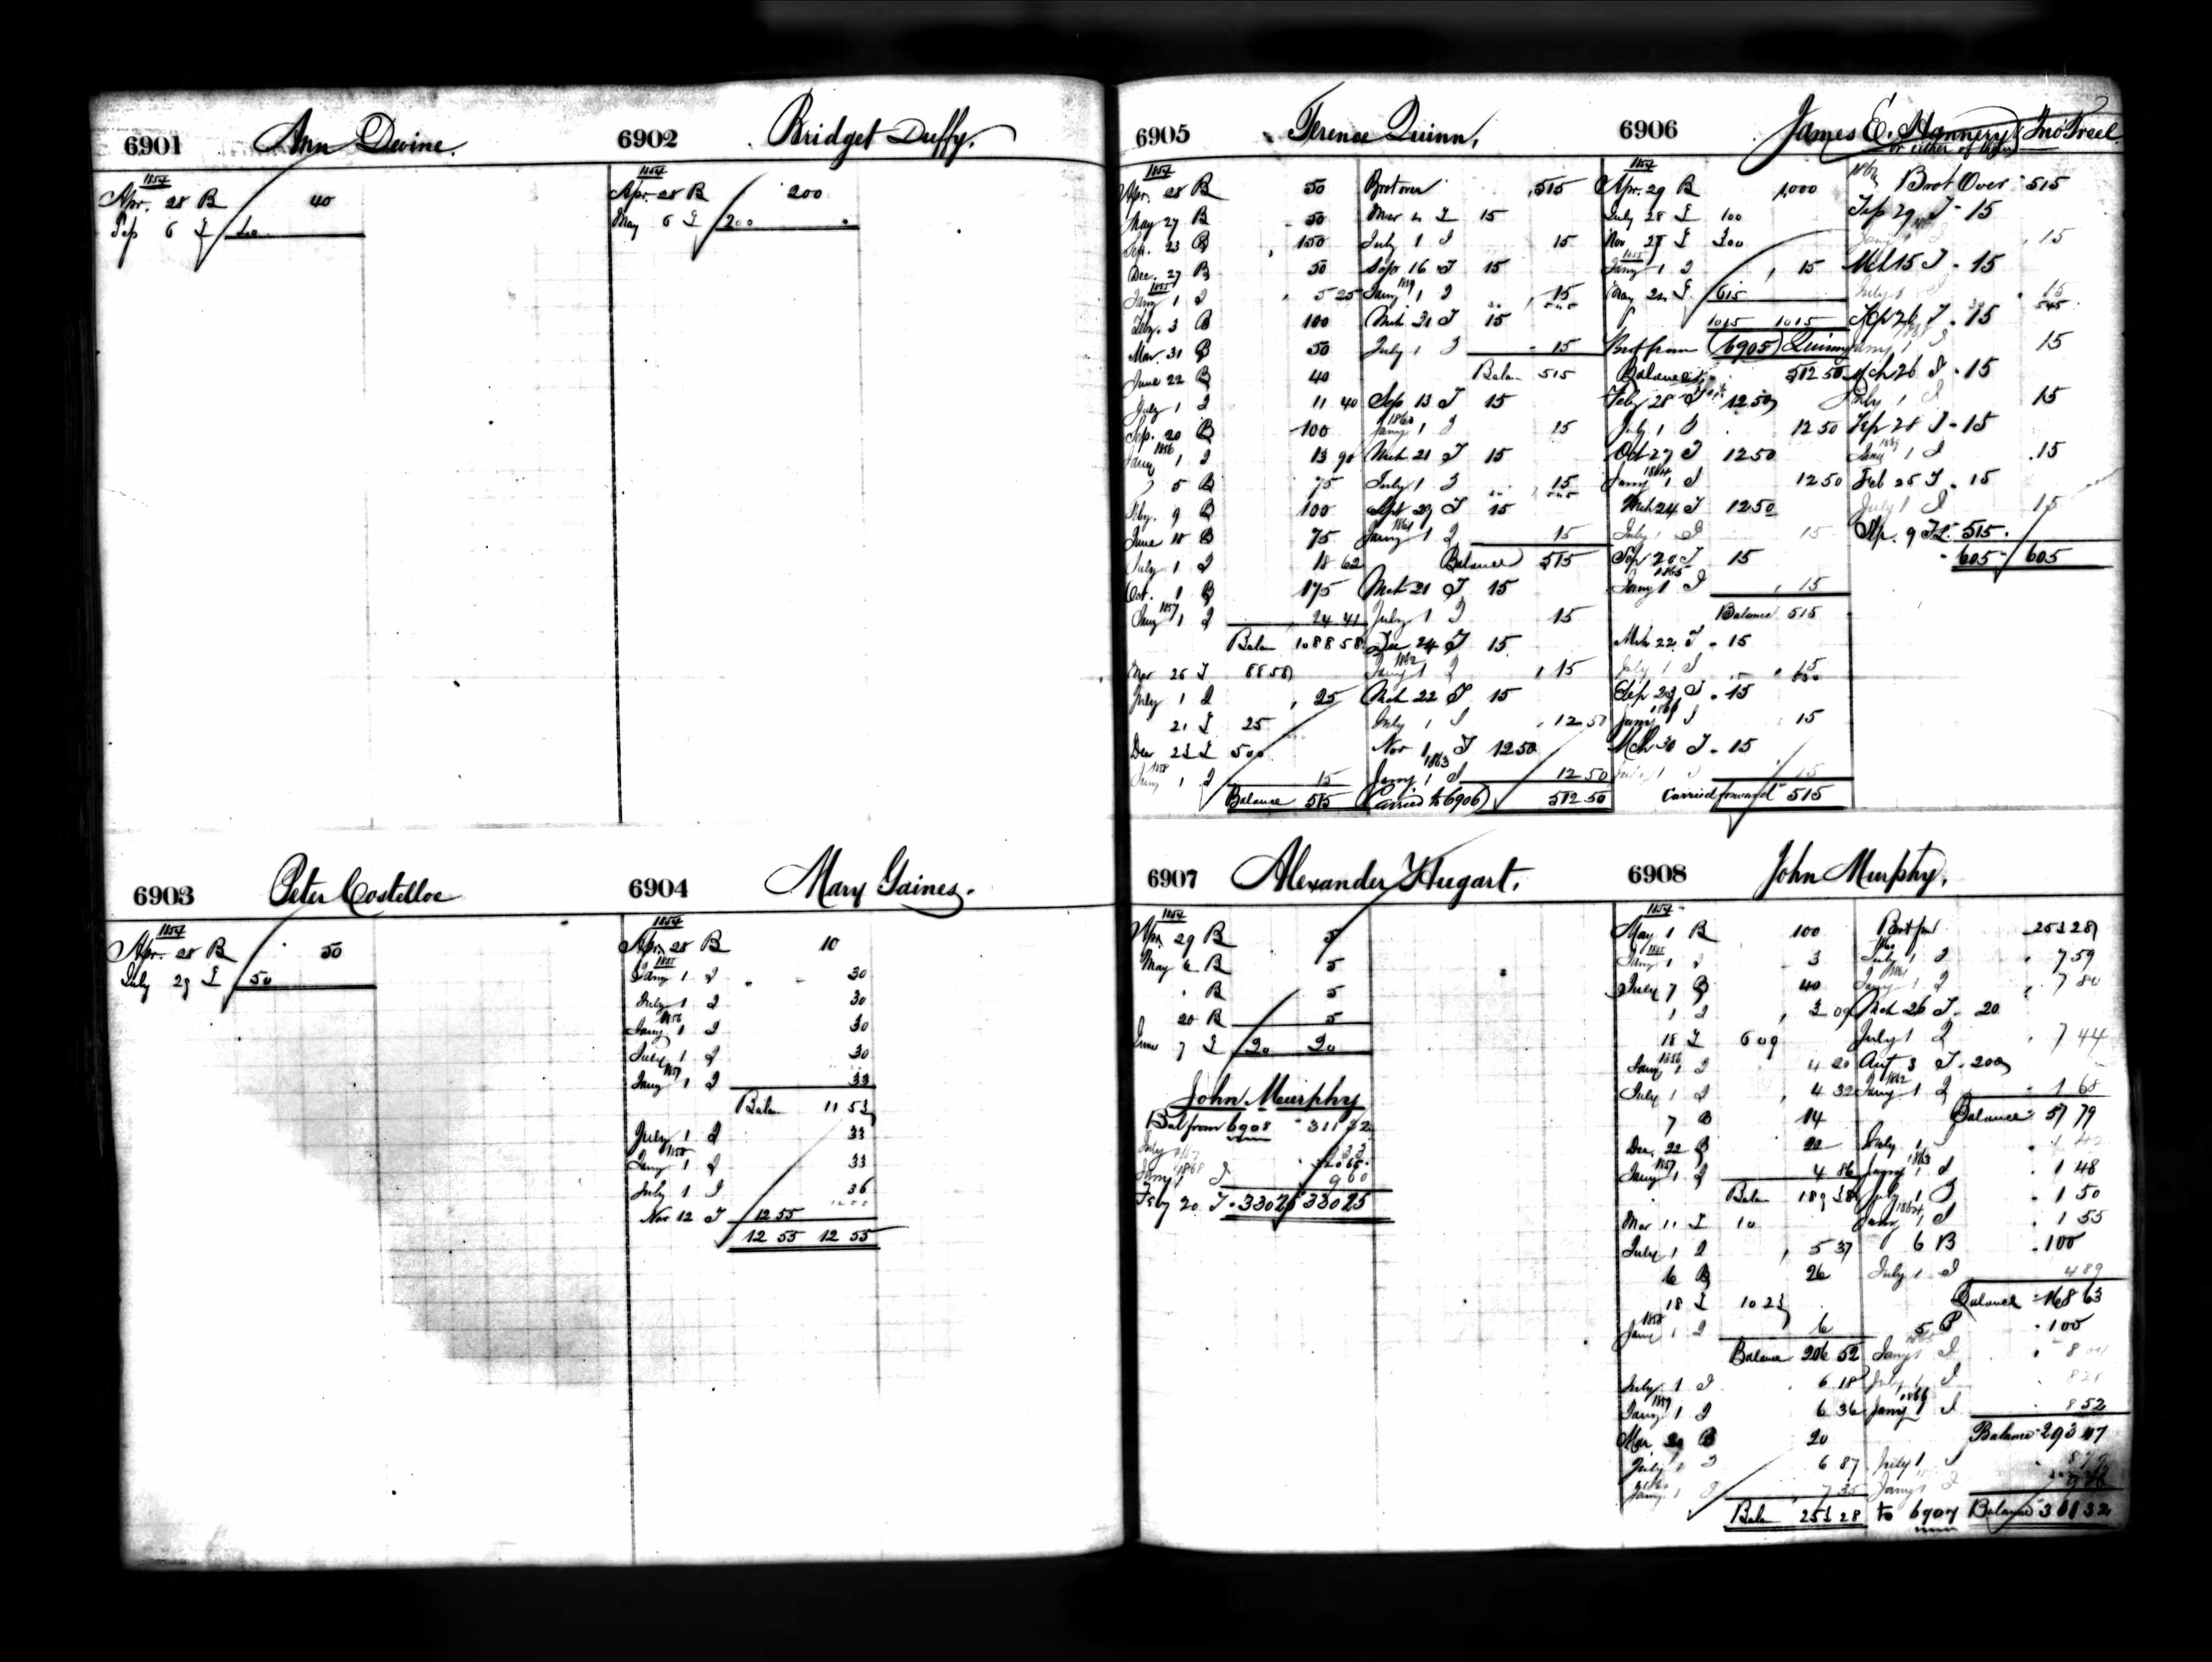 6901 Ann Devine.
1854
Apr. 28 B 40
Sep 6 40
6902 Bridget Duffy.
1854
Apr. 28 B 200
May 6 200
6903 Peter Costelloe
1854
Apr. 28 B 50
July 29 50
6904 Mary Gaines.
1854
Apr. 28 B 10
1855
Jany 1 I 30
July 1 I 30
1856
Jany 1 I 30
July 1 I 30
1857
Jany 1 I 33
Balan 11 53
July 1 I 33
1858
Jany 1 I 33
July 1 I 36
Nov 12 T 12 55
12 55 12 55
6905 Terence Quinn.
1854
Apr. 28 B 50
May 27 B 50
Sep. 23 B 150
Dec. 27 B 50
1855
Jany 1 I 5 25
Feby. 3 B 100
Mar. 31 B 50
June 22 B 40
July 1 I 11 40
Sep. 20 B 100
1856
Jany 1 I 13 90
5 B 75
Feby. 9 B 100
June 18 B 75
July 1 I 18 62
Oct. 1 B 175
1857
Jany 1 I 24 41
Balan 1088 58
Mar 26 T 88 58
July 1 I 25
21 25
Dec 23 500
1858
Jany 1 I 15
Balance 515
Brot over 515
Mar 4 15
July 1 I 15
Sep 16 T 15
1859
Jany 1 I 15
Mch 31 T 15
July 1 I 15
Balan 515
Sep 13 T 15
1860
Jany 1 I 15
Mch 21 T 15
July 1 I 15
Sept 29 T 15
1861
Jany 1 I 15
Balance 515
Mch 21 T 15
July 1 I 15
Dec 24 T 15
1862
Jany 1 I 15
Mch 22 T 15
July 1 I 12 50
Nov 1 T 12 50
1863
Jany 1 I 12 50
(Carried to 6906) 512 50
6906 James E. Flannery & Jno Freel
or either of them
1854
Apr. 29 B 1,000
July 28 100
Nov 27 300
1855
Jany 1 I 15
May 24 615
1015 1015
Brot from (6905) Quinn
Balance 512 50
Feby 28 T 12 50
July 1 I 12 50
Oct 27 T 12 50
1864
Jany 1 I 12 50
Mch 24 T 12 50
July 1 I 15
Sep 20 T 15
1865
Jany 1 I 15
Balance 515
Mch 22 T 15
July 1 I 15
Sep 23 T 15
1866
Jany 1 I 15
Mch 30 T 15
July 1 I 15
Carried forward 515
Brot Over 515
Sep 29 T 15
Jany 1 I 15
Mch 15 T 15
July 1 I 15
Sep 26 T 15
Jany 1 I 15
Mch 26 T 15
July 1 I 15
Sep 28 T 15
Jany 1 I 15
Feb 25 T 15
July 1 I 15
515
605 605
6907 Alexander Hugart.
1854
Apr. 29 B 5
May 6 B 5
B 5
20 B 5
June 7 20 20
John Murphy
Bal from 6908 311 32
July 1867
Jany 1 1868 I 9 60
Feby 20 T 330 25 330 25
6908 John Murphy.
1854
May 1 B 100
1855
Jany 1 I 3
July 7 B 40
1 I 3 09
18 6 09
1856
Jany 1 I 4 20
July 1 I 4 32
7 B 14
Dec. 22 B 22
1857
Jany 1 I 4 86
Balan 189 38
Mar 11 10
July 1 I 5 37
6 B 26
18 10 23
1858
Jany 1 I 6
Balance 206 52
July 1 I 6 18
1859
Jany 1 I 6 36
Mar. B 20
July 1 I 6 87
1860
Jany 1 I 7 35
Balan 253 28
Brot for 253 28
1860
July 1 I 7 59
1861
Jany 1 I 7 80
Mch 26 T 20
July 1 I 7 44
Aut 3 T 200
1862
Jany 1 I 1 68
Balance 57 79
July 1 I 1 42
1863
Jany 1 I 1 48
July 1 I 1 50
1864
Jany 1 I 1 55
6 B 100
July 1 I 4 89
Balance 168 63
5 B 100
Jany 1 I 8 04
July 1 I 8 28
1866
Jany 1 I 8 52
Balance 293 47
July 1 I
Jany 1 I
to 6907 Balance 311 32